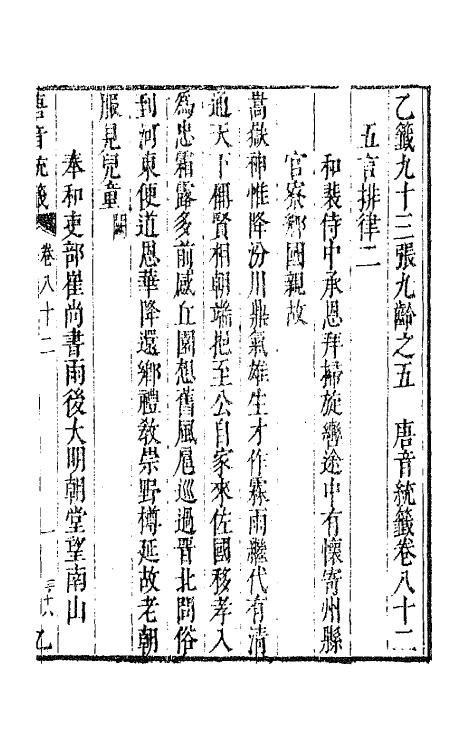 乙籤九十三張九齡之五　唐音統籤卷八十二
五言排律二
和裴侍中承恩拜掃旋轡途中有懷寄州縣
官寮鄉國親故
嵩嶽神惟降汾川鼎氣雄生才作霖雨繼代有清
通天下稱賢相朝端挹至公自家來佐國移孝入
為忠霜露多前感丘園想舊風扈巡過晉北問俗
到河東便道恩華降還鄉禮教崇野樽延故老朝
服見兒童闕
奉和吏部崔尚書雨後大明朝堂望南山
唐音統籤
卷八十二
一
乙